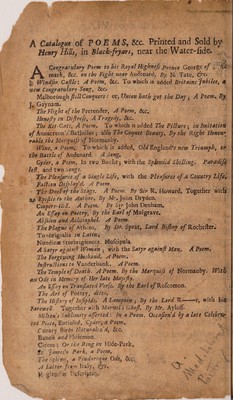 A Catalogue of POEMS, &c. Printed and Sold by
Henry Hills, in Black-fryars, near the Water-side.
A Congratulatory Poem to his Royal Highness Prince George of
mark, &c. on the Fight near Audenard. By N. Tate, Esq;
Windsor Castle: A Poem, &c. To which is added Britains Jubilee, a
new Congratulatory Song, &c.
Malborough still Conquers: or, Union hath got the Day; A Poem. By
J. Gaynam.
The Flight of the Pretender, A Poem, &c.
Honesty in Distress, A Tragedy, &c.
The Kit-Cats, A Poem. To which is added The Picture, in Imitation
of Anacreon's Bathillus; also The Coquet Beauty, By the Right Honour-
rable the Marquess of Normanby.
Wine, a Poem, To which is added, Old England's new Triumph, or
the Battle of Audenard. A Song.
Cyder, a Poem, in two Books; with the Splendid Shilling. Paradise
lost, and two Songs.
The Pleasures of a Single Life, with the Pleasures of a Country Life.
Faction Display'd. A Poem.
The Duel of the Stags. A Poem. By Sir R. Howard. Together with
an Epistle to the Author. By Mr. John Dryden.
Cooper-Hill. A Poem. By Sir John Denham,
An Essay on Poetry, By the Earl of Mulgrave.
Absalom and Achitophel. A Poem.
The Plague of Athens, By Dr. Sprat, Lord Bishop of Rochester.
Taudriugalia in Latin;
Nundinæ Sturbrigienses. Muscipula.
A Satyr against Woman, with the Satyr against Man. A Poem.
The Forgiving Husband. A Poem.
Instructions to Vanderbank. A Poem.
The Temple of Death. A Poem. By the Marquiss of Normanby. With
an Ode in Memory of Her late Majesty.
An Essay on Translated Verse. By the Earl of Roscomon.
The Art of Poetry, ditto.
The History of Insipids. A Lampoon, By the Lord R——r, with his
Farewell. Together with Marvil's Ghost. By Mr. Ayloff.
Milton's Sublimity asserted: In a Poem. Occasion'd by a late Celebra-
ted Poem, Entituled, Cyder, a Poem.
Canary Birds Naturaliz'd, &c.
Baucis and Philemon.
Circus: Or the Ring in Hide-Park,
St. James's Park, a Poem,
A Letter from Italy, &c.